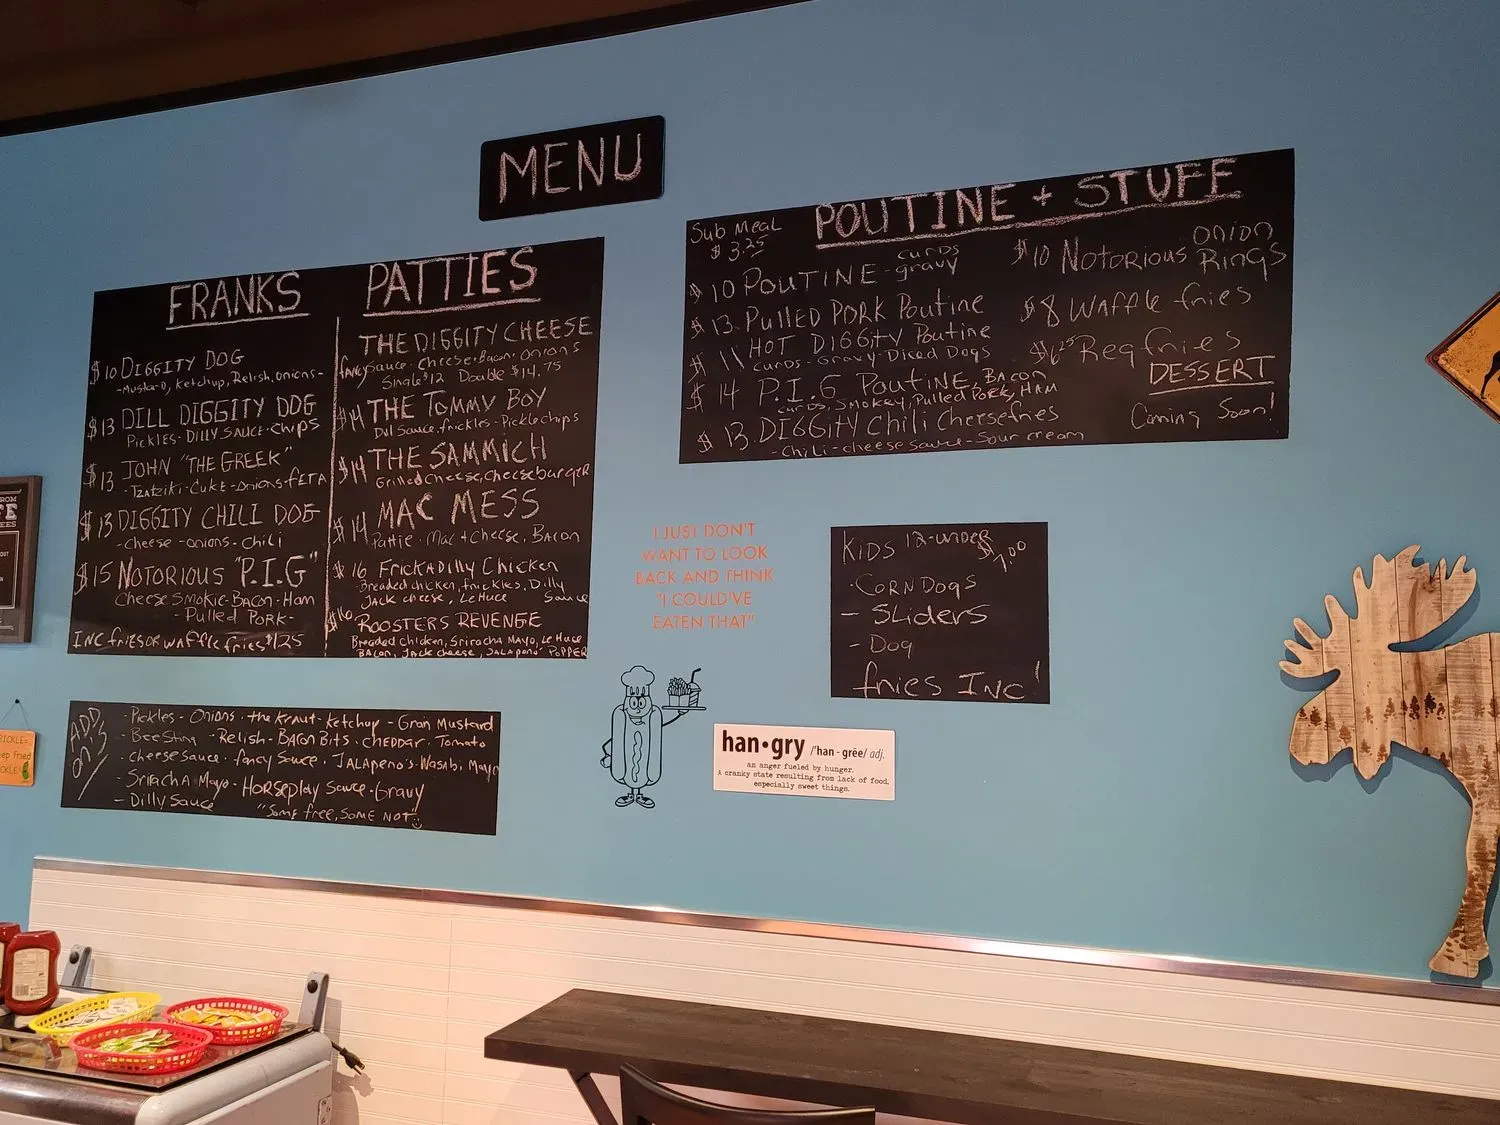 MENU
FRANKS
$10 DIGGITY DOG
-Mustard, Ketchup, Relish, Onions-
$13 DILL DIGGITY DOG
Pickles-Dilly Sauce-Chips
$13 JOHN "THE GREEK"
-Tzatziki-Cuke-Onions-fETA
$13 DIGGITY CHILI DOG
-Cheese-onions-Chili
$15 NOTORIOUS "P.I.G"
Cheese Smokie-Bacon-Ham
-Pulled Pork-
INC fries OR waffle fries $1.25
PATTIES
THE DIGGITY CHEESE
fancy Sauce-Cheese-Bacon-Onions
Single $12 Double $14.75
$14 THE TOMMY BOY
Dill Sauce, frickles-Pickle chips
$14 THE SAMMICH
Grilled Cheese, Cheeseburger
$14 MAC MESS
Pattie-Mac+Cheese, Bacon
$16 FRICKADILLY CHICKEN
Breaded chicken, frickles, Dilly
Jack cheese, Lettuce Sauce
$16 ROOSTERS REVENGE
Breaded Chicken, Sriracha Mayo, Lettuce
BACON, Jack cheese, JALAPENO POPPER
ADD ON'S
-Pickles-Onions-the Kraut-Ketchup-Grain Mustard
-Bee Sting-Relish-BACON Bits-CHEDDAR-Tomato
-cheese Sauce-fancy Sauce-JALAPENO'S-Wasabi Mayo
-Sriracha Mayo-Horseplay Sauce-Gravy
-Dilly Sauce "Some free, Some NOT"
POUTINE + STUFF
Sub Meal
$3.25
$10 POUTINE-curds
gravy
$13 Pulled PORK Poutine
$11 HOT DIGGITY Poutine
curds-Gravy-Diced Dogs
$14 P.I.G Poutine, BACON
curds, Smokey, Pulled Pork, HAM
$13 DIGGITY Chili Cheesefries
-Chili-cheese sauce-Sour cream
$10 Notorious Onion Rings
$8 WAFFLE fries
$6.25 Reg fries
DESSERT
Coming Soon!
I JUST DON'T
WANT TO LOOK
BACK AND THINK
"I COULD'VE
EATEN THAT"
KIDS 12-under
$7.00
-CORN DOGS
-Sliders
-Dog
fries INC!
han•gry /'han-grēe/ adj.
an anger fueled by hunger.
A cranky state resulting from lack of food,
especially sweet things.